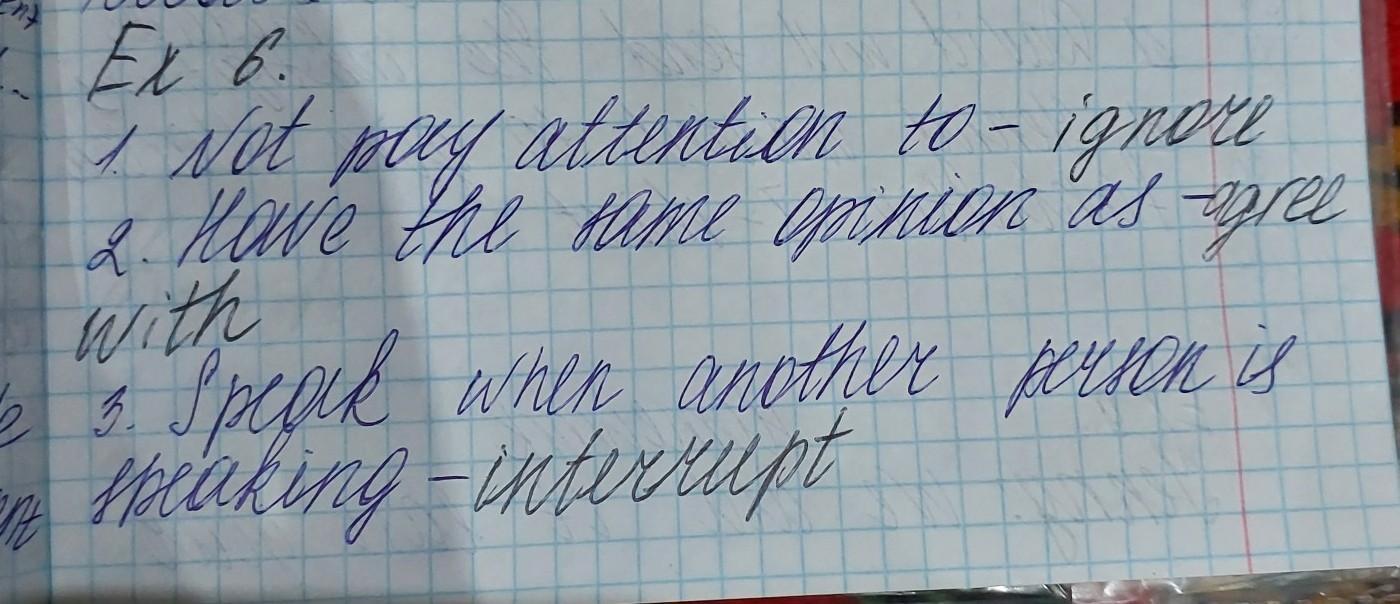 Ex 6.
1. Not pay attention to - ignore
2. Have the same opinion as - agree
with
3. Speak when another person is
speaking - interrupt